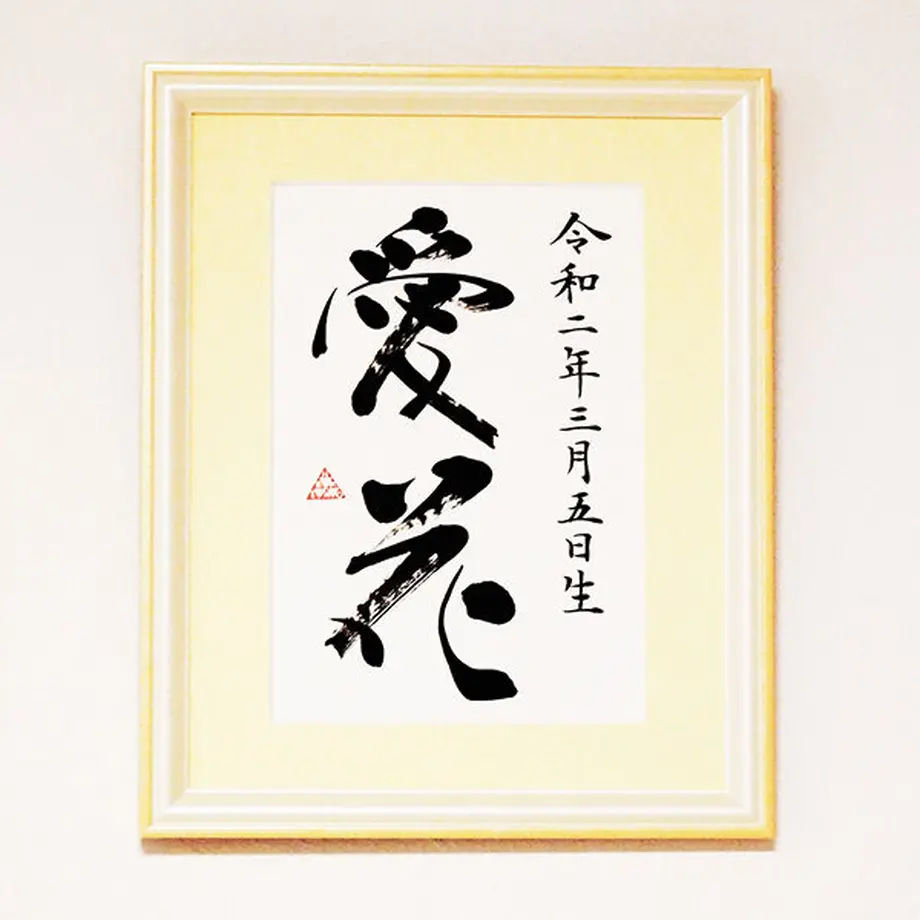 令和二年三月五日生
愛花